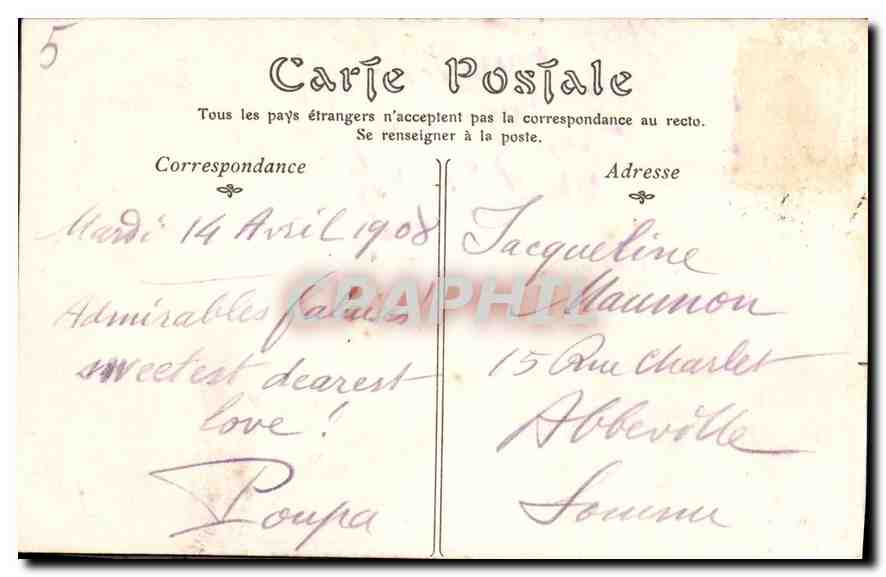 5
Carte Postale
Tous les pays étrangers n'acceptent pas la correspondance au recto.
Se renseigner à la poste.
Correspondance
Mardi 14 Avril 1908
Admirables
sweetest dearest
love !
Poupa
Adresse
Jacqueline
Maumon
15 Rue Charlet
Abbeville
Somme
CPAPHIL